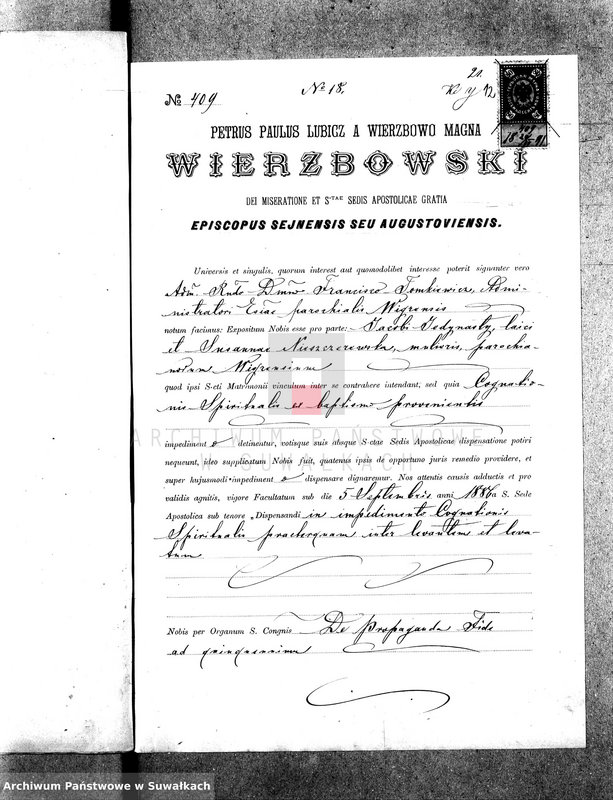 № 409
№ 18.
20.
PETRUS PAULUS LUBICZ A WIERZBOWO MAGNA
WIERZBOWSKI
DEI MISERATIONE ET S^TAE SEDIS APOSTOLICAE GRATIA
EPISCOPUS SEJNENSIS SEU AUGUSTOVIENSIS.
Universis et singulis, quorum interest aut quomodolibet interesse poterit signanter vero
Adm. Rndo Dmno Francisco Tomkiewicz, Admi-
nistratori Eccae parochialis Wigrensis
notum facimus: Expositum Nobis esse pro parte: Jacobi Jedynasty, laici
et Susannae Nieszczerzewska, mulieris, parochia-
norum Wigrensium
quod ipsi S-cti Matrimonii vinculum inter se contrahere intendant, sed quia Cognatio-
nis Spiritualis ex baptismo provenientis
impediment o detinentur, votisque suis absque S-ctae Sedis Apostolicae dispensatione potiri
nequeunt, ideo supplicatum Nobis fuit, quatenus ipsis de opportuno juris remedio providere, et
super hujusmodi impediment o dispensare dignaremur. Nos attentis causis adductis et pro
validis agnitis, vigore Facultatum sub die 5 Septembris anni 1886 a S. Sede
Apostolica sub tenore „Dispensandi in impedimento Cognationis
Spiritualis praeterquam inter levantem et leva-
tum
Nobis per Organum S. Congnis De Propaganda Fide
ad quinquennium
ARCHIWUM PAŃSTWOWE
W SUWAŁKACH
Archiwum Państwowe w Suwałkach